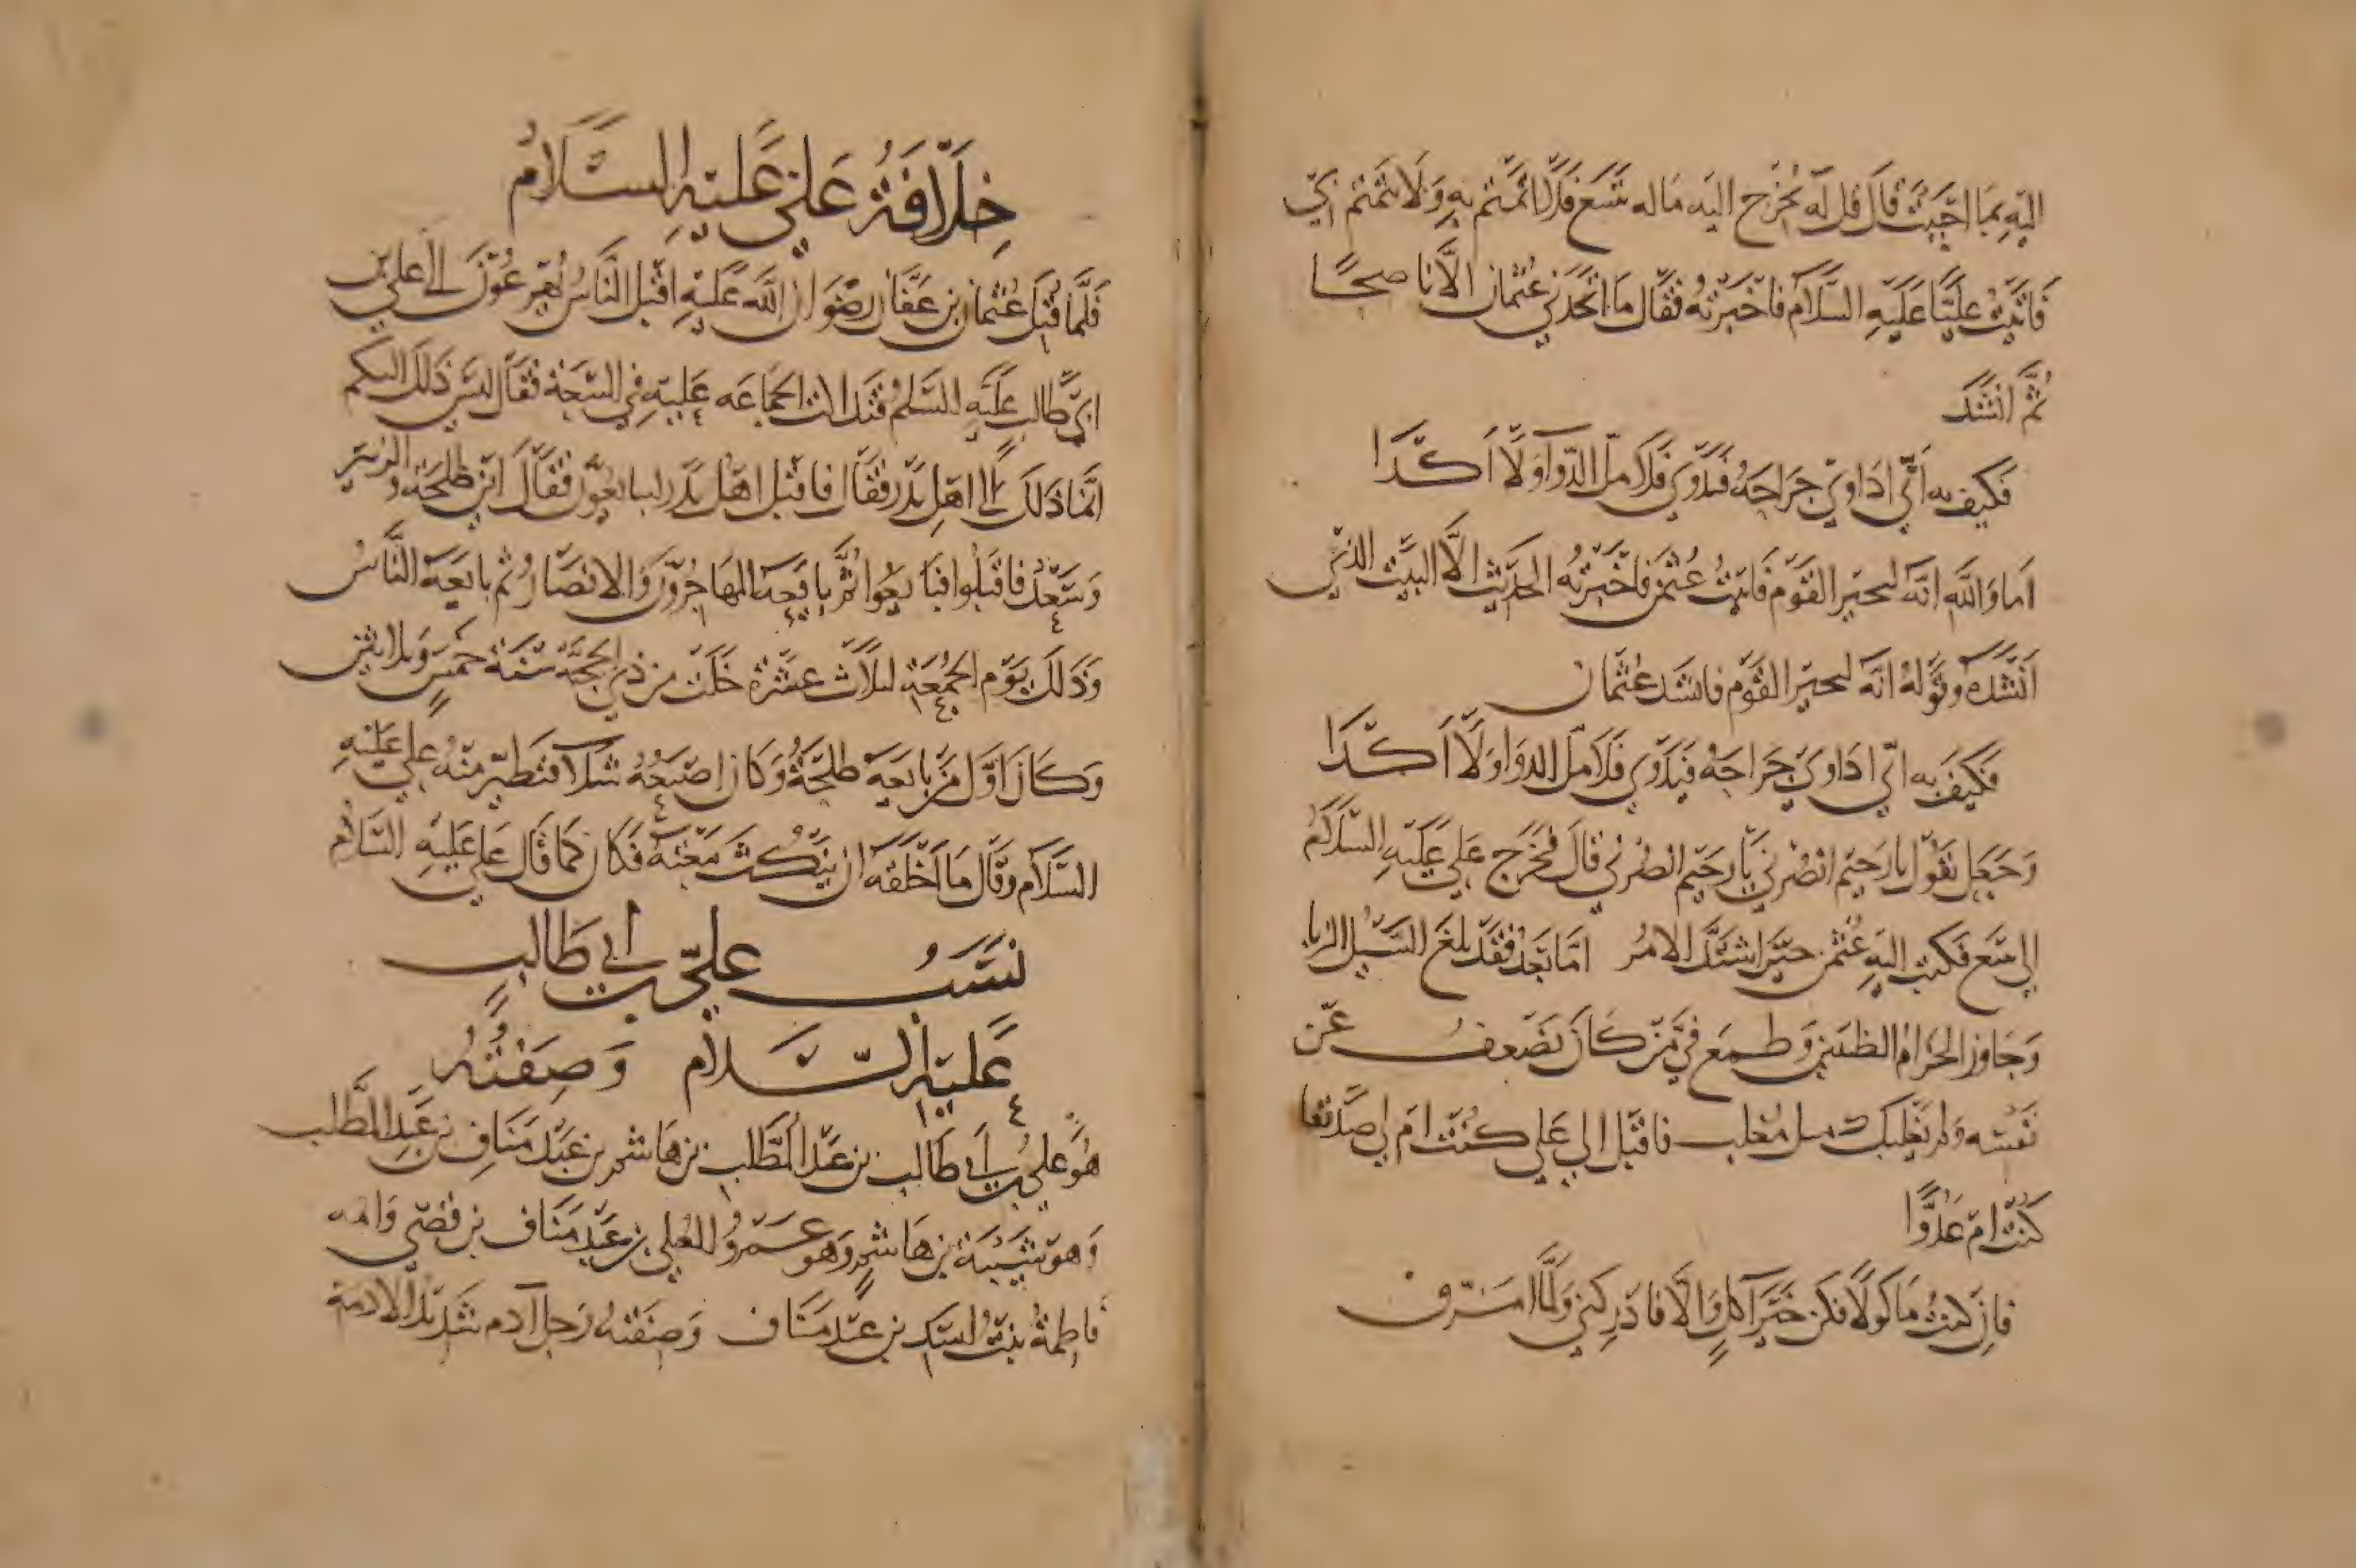 اليه بما احببت قال قل له يخرج اليه ماله بينبع فلا اغتم به ولا يغتم بي
فاتيت عليا عليه السلام فاخبرته فقال ما اتخذني عثمان الا ناصحا
ثم انشد
فكيف به اني اداوي جراحه فيدوي فلا مل الدوا ولا الدا
اما والله انه لخبير القوم فاتيت عثمن فاخبرته الحديث الا البيت الذي
انشده وقوله انه لخبير القوم فانشد عثمان
فكيف به اني اداوي جراحه فيدوي فلا مل الدوا ولا الدا
وجعل يقول يا رحيم انصرني يا رحيم انصرني قال فخرج علي عليه السلام
الى ينبع فكتب اليه عثمن حين اشتد الامر اما بعد فقد بلغ السيل الزبا
وجاوز الحزام الطبيين وطمع في من كان يضعف عن
نفسه ولم يغلبك مثل مغلب فاقبل الي علي كنت ام لي صديقا
كنت ام عدوا
فان كنت ماكولا فكن خير اكل والا فادركني ولما امزق
خلافة علي عليه السلام
فلما قتل عثمان بن عفان رضوان الله عليه اقبل الناس يهرعون الى علي بن
ابي طالب عليه السلم فتداكت الجماعه عليه في البيعة فقال ليس ذلك اليكم
انما ذلك الى اهل بدر فقال فاقبل اهل بدر ليبايعون فقال اين طلحة والزبير
وسعد فاقبلوا فبايعوا ثم بايعه المهاجرون والانصار ثم بايعه الناس
وذلك يوم الجمعة لثلاث عشرة خلت من ذي الحجة سنة خمس وثلاثين
وكان اول من بايعه طلحة وكان اصبعه شلا فتطير منه علي عليه
السلام وقال ما اخلقه ان ينكث بيعته فكان كما قال علي عليه السلام
نسب علي بن ابي طالب
عليه السلام وصفته
هو علي بن ابي طالب بن عبد المطلب بن هاشم بن عبد مناف بن عبد المطلب
وهو شيبة بن هاشم وهو عمرو العلي بن عبد مناف بن قصي وامه
فاطمة بنت اسد بن عبد مناف وصفته رجل آدم شديد الادمة